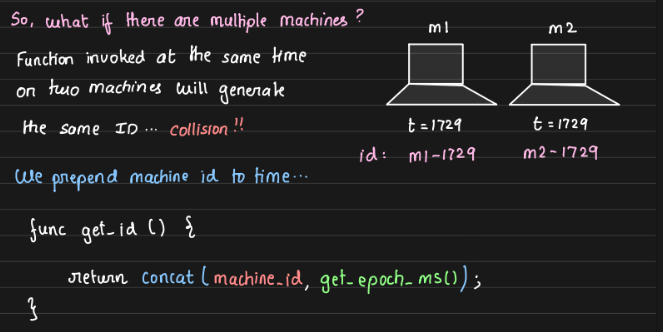 So, what if there are multiple machines?
m1
m2
Function invoked at the same time
on two machines will generate
the same ID... collision!!
t = 1729
t = 1729
id: m1-1729
m2-1729
We prepend machine id to time...
func get_id () {
return concat ( machine_id, get_epoch_ms());
}